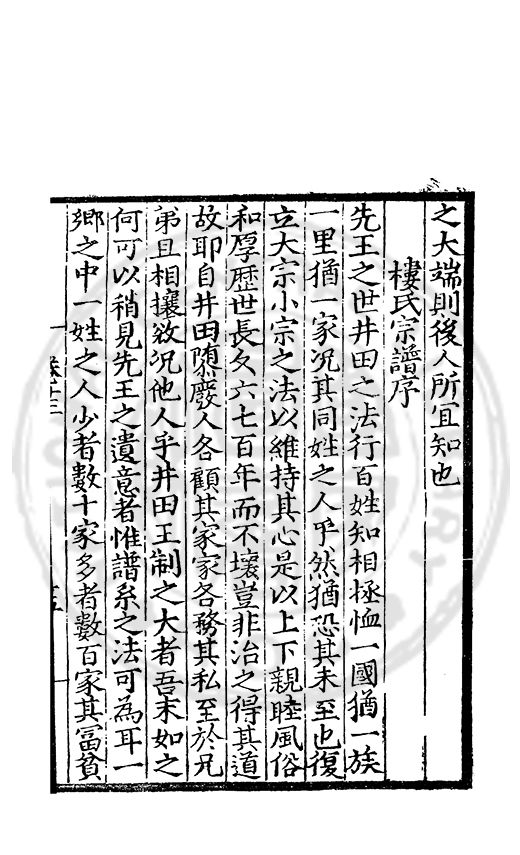 之大端則後人所宜知也
樓氏宗譜序
先王之世井田之法行百姓知相拯恤一國猶一族
一里猶一家况其同姓之人乎然猶恐其未至也復
立大宗小宗之法以維持其心是以上下親睦風俗
和厚歷世長久六七百年而不壞豈非治之得其道
故耶自井田隳廢人各顧其家家各務其私至於兄
弟且相攘敓况他人乎井田王制之大者吾末如之
何可以稍見先王之遺意者惟譜系之法可為耳一
鄉之中一姓之人少者數十家多者數百家其冨貧